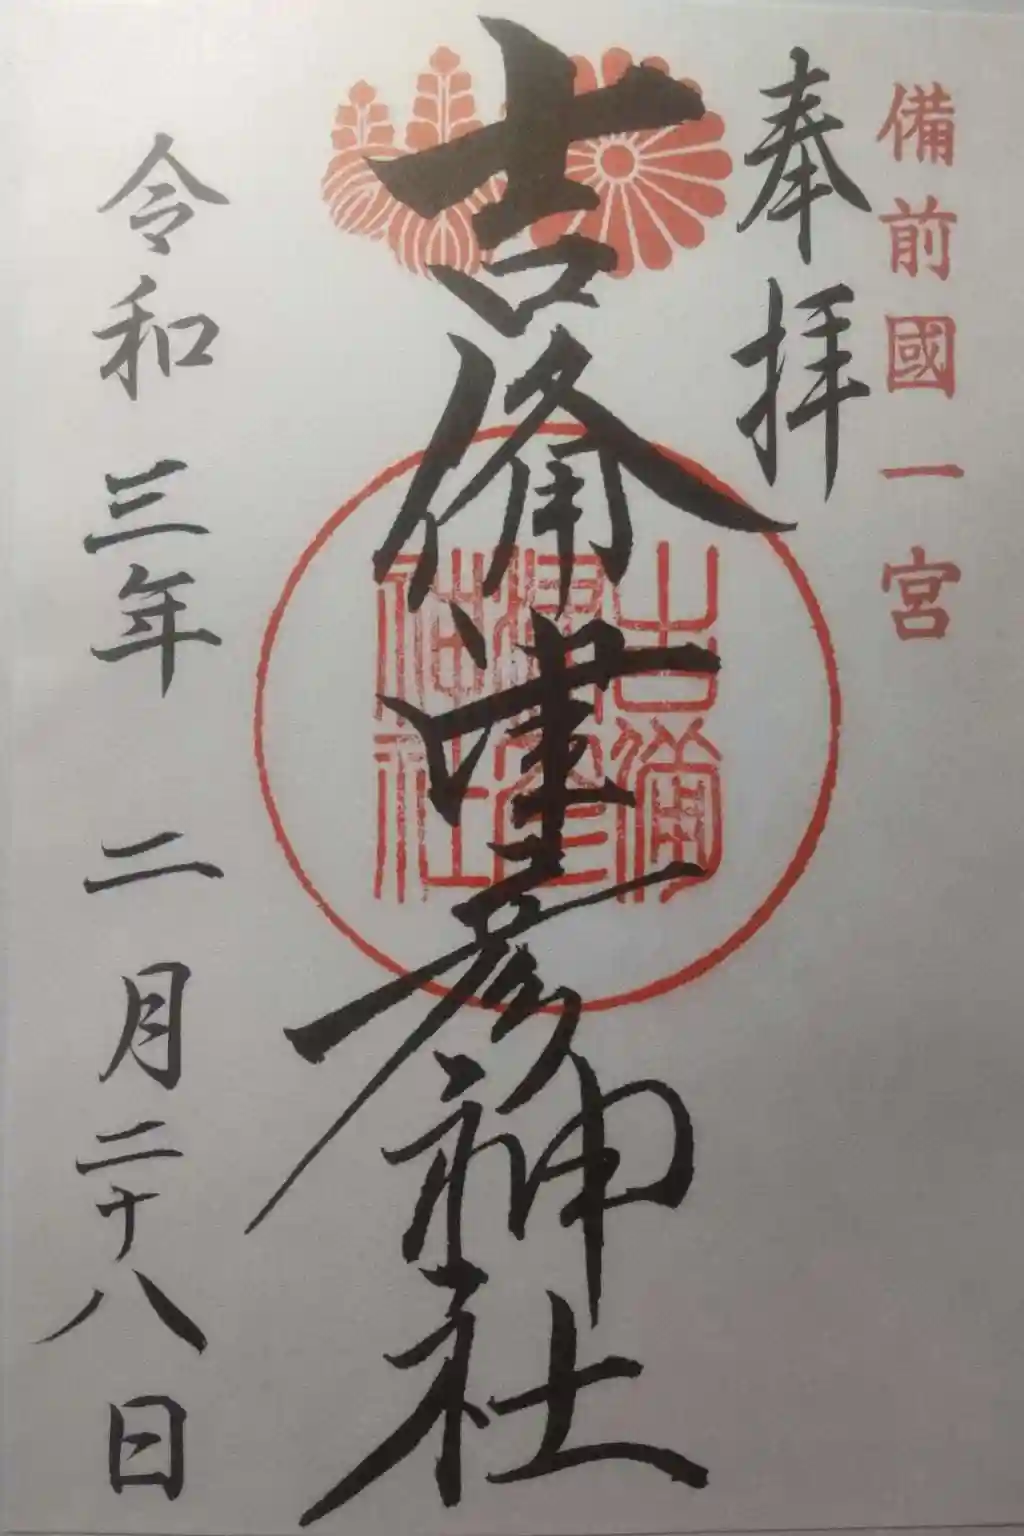 備前國一宮
奉拝
吉備津彦神社
吉備津彦神社
令和三年二月二十八日